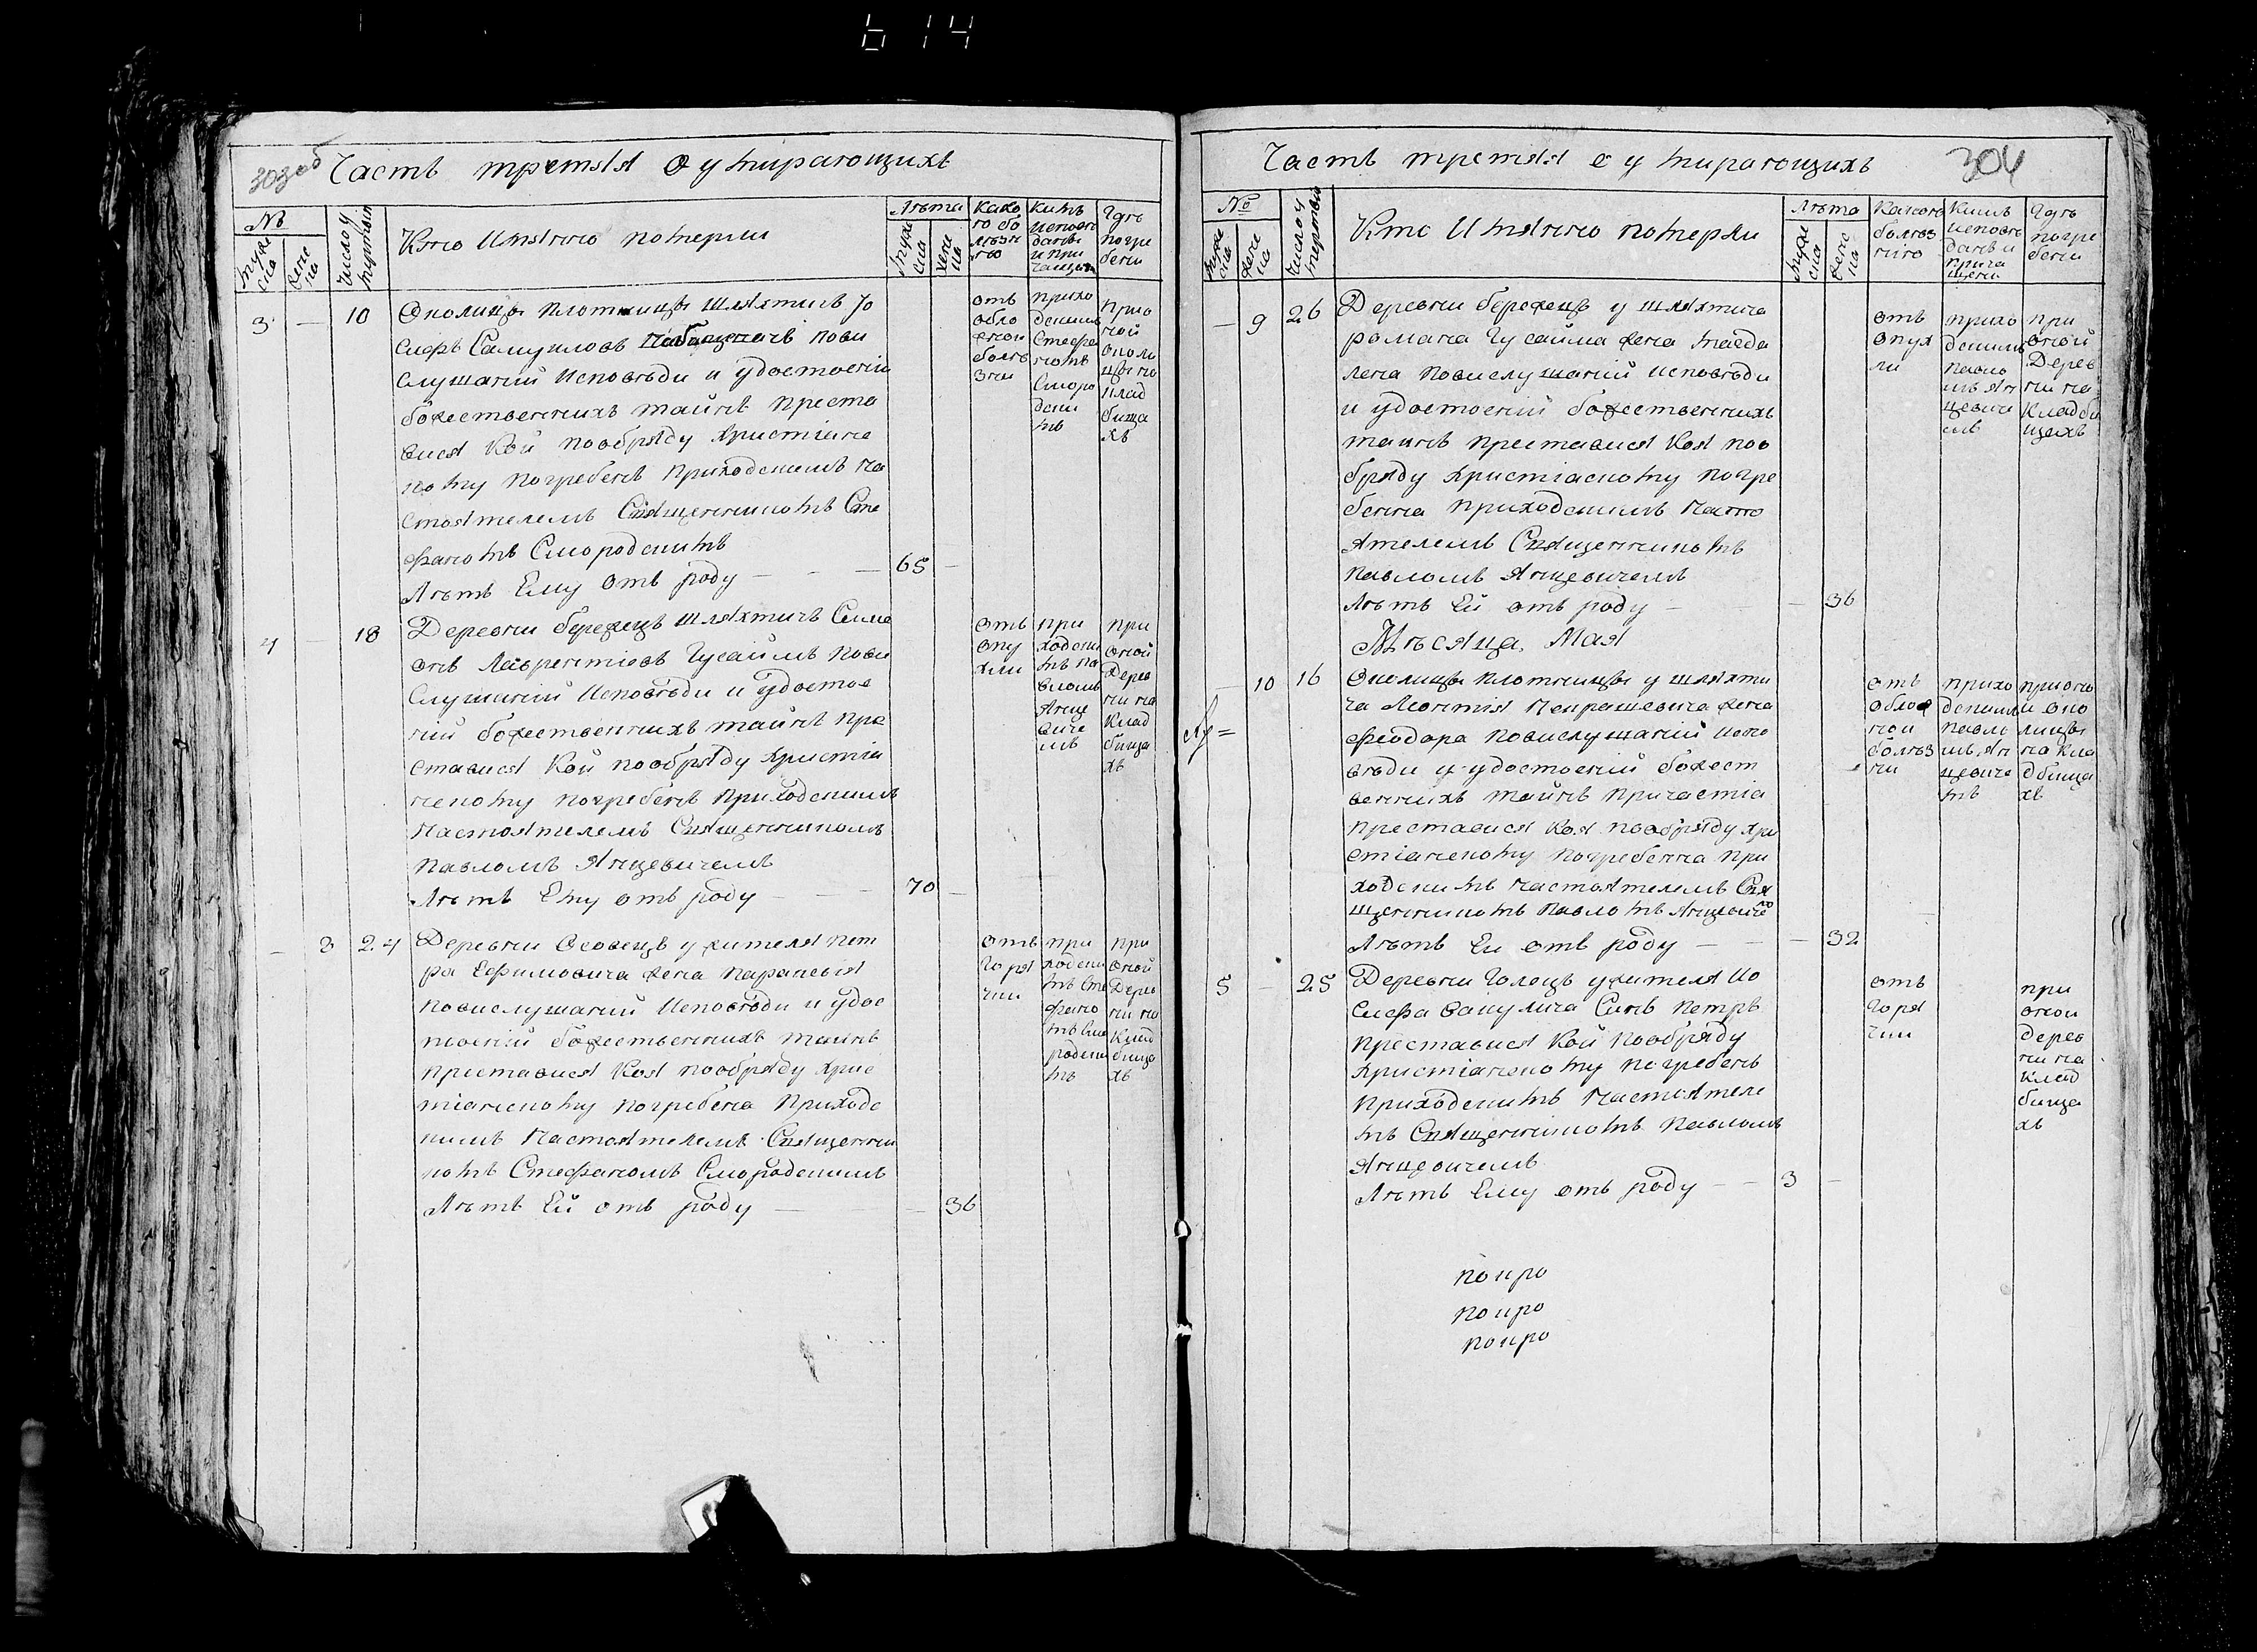 614
303об
Часть третяя О умирающихъ
№
Лѣта
Како
го бо
лѣзн
ію
Кимъ
исповѣ
даны
и при
чащен
Гдѣ
погре
бени
муже
ска
жен
ска
число у
мертвыхъ
Кто Имянно померли
муже
ска
жен
ска
3 — 10
Околицы Плотницы шляхтичъ Іо
сифъ Самуиловъ повы
слушаній Исповѣди и удостоеніи
божественнихъ тайнъ преста
вися Кой пообряду Христіанс
кому погребенъ Приходскимъ На
стоятелемъ Священникомъ Сте
фаномъ Смородскимъ
Лѣтъ Ему отъ роду — — — 65 —
отъ
обло
жной
болѣ
зни
прихо
дским
Стефа
номъ
Сморо
дски
мъ
При
ной
Околи
цы на
Клад
бища
хъ
4 — 18
Деревни бережецъ шляхтичъ Симе
онъ Лаврентіовъ Гусаимъ повы
слушаній Исповѣди и удостое
ній божественнихъ тайнъ пре
стависа Кой пообряду Христіа
нскому погребенъ Приходскимъ
Настоятелемъ Священникомъ
Павломъ Янцевичемъ
Лѣтъ Ему отъ роду — — 70 —
отъ
опу
хли
при
ходски
мъ па
вломъ
Янце
виче
мъ
при
оной
Дерев
ни на
Клад
бища
хъ
— 8 24
Деревни Осовецъ у жителя Пет
ра Ефимовича жена Параскевія
повислушаній Исповѣди и удос
тоеній божественнихъ тайнъ
преставися Коя пообряду Хрис
тіанскому погребена Приходс
кимъ Настоятелемъ Священни
комъ Стефаномъ Смородскимъ
Лѣтъ Ей отъ роду — — 36
отъ
горя
чки
при
ходски
мъ Сте
фано
мъ Смо
родски
мъ
при
оной
Дерев
ни на
Клад
бища
хъ
Часть третяя о умирающихъ
304
№
Лѣта
Какою
болѣз
нію
Кимъ
исповѣ
даны и
прича
щени
Гдѣ
погре
бени
муже
ска
жен
ска
число у
мертвых
Кто Имянно померли
муже
ска
жен
ска
— 9 26
Деревни бережецъ у шляхтича
романа Гусаима жена магда
лена повислушаній исповѣди
и удостоеній божественнихъ
тайнъ преставися Коя поо
бряду Христіаскому погре
бенна приходскимъ Насто
ятелемъ Священникомъ
Павломъ Янцевичемъ
Лѣтъ Ей отъ роду — — 36
отъ
опух
ли
прихо
дскимъ
павло
мъ Ян
цевиче
мъ
при
оной
Дерев
ни на
Кладби
щахъ
Мѣсяца Мая
— 10 16
Околицы Плотницы у шляхти
ча Леонтія жена
Феодора повислушаній испо
вѣди и удостоеній божест
веннихъ тайнъ причастіа
преставися Коя пообряду Хри
стіанскому погребенна при
ходскимъ настоятелемъ Свя
щенникомъ Павломъ Янцевиче
Лѣтъ Ей отъ роду — — — 32
отъ
облож
ной
болѣз
ни
прихо
дским
павло
мъ Ян
цевиче
мъ
при оно
й око
лицы
на Кла
дбища
хъ
5 — 25
Деревни Голецъ у жителя Іо
сифа Синъ Петръ
преставися Кой пообряду
Христіанскому погребенъ
приходскимъ Настоятеле
мъ Священникомъ Павломъ
Янцевичемъ
Лѣтъ Ему отъ роду — — 3 —
отъ
горя
чки
при
оной
дерев
ни на
клад
бища
хъ